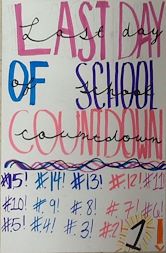 LAST DAY
Last day
OF SCHOOL
of school
COUNTDOWN
countdown
#15! #.14! #13! #.12! #11!
#10! #.9! #.8! #.7! #6!
#5! #4! #.3! #2! 1!